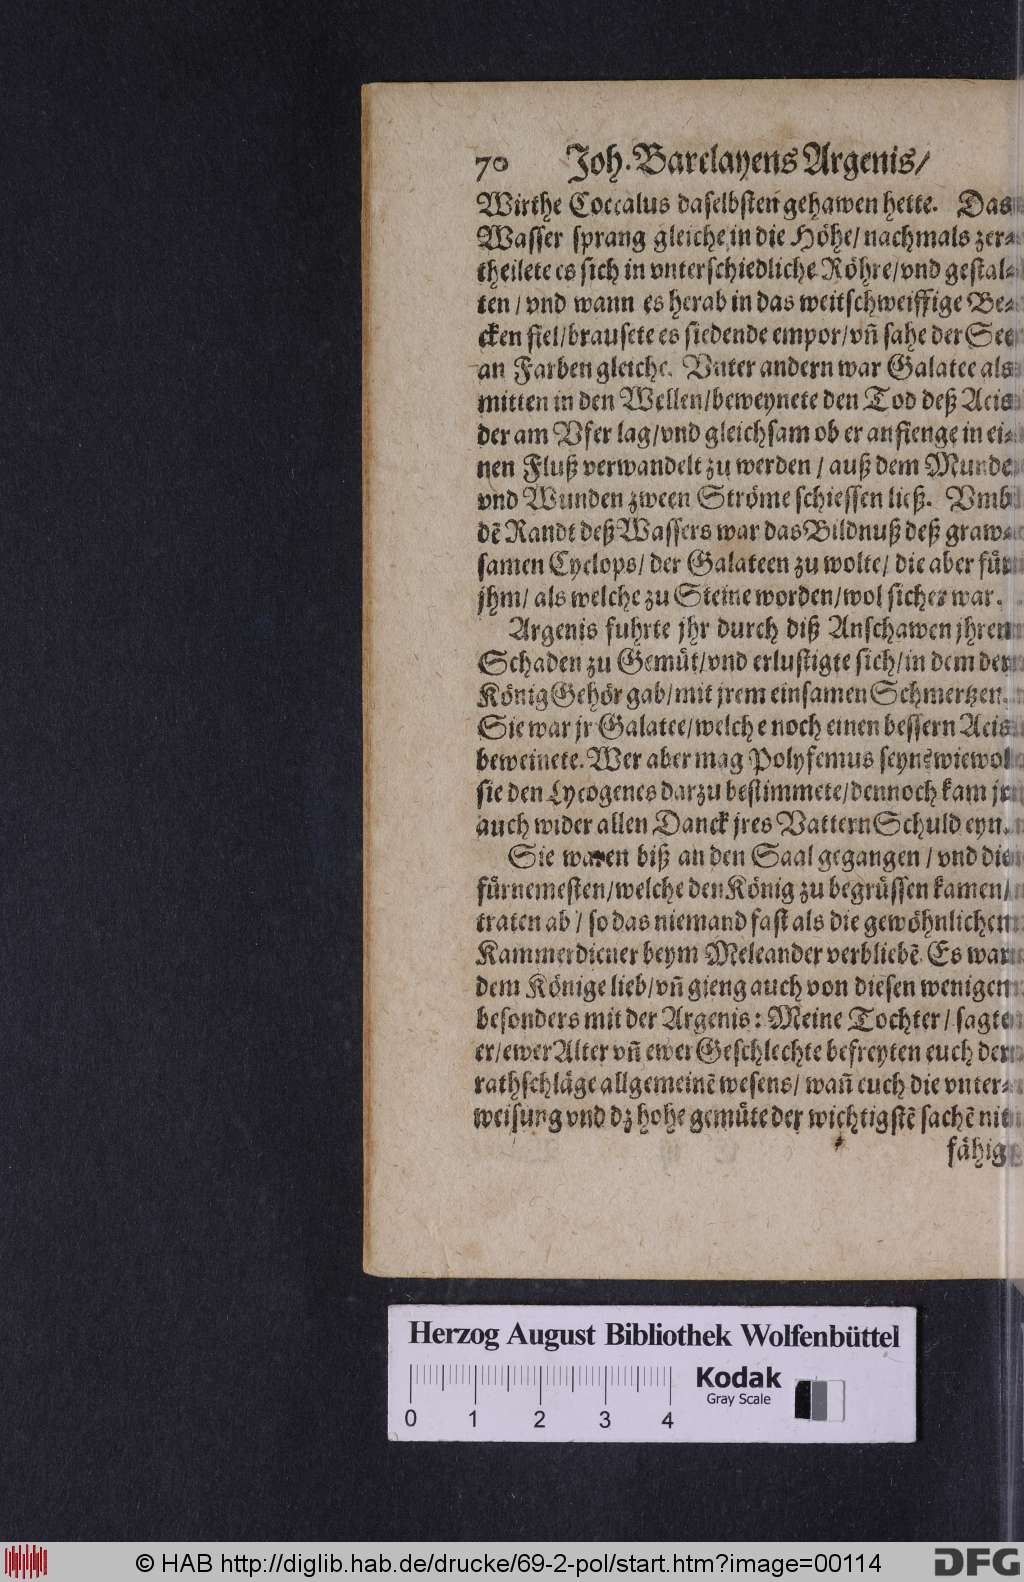 70 Joh. Barclayens Argenis/
Wirthe Coccalus daselbsten gehawen hette. Das
Wasser sprang gleiche in die Höhe/ nachmals zer-
theilete es sich in vnterschiedliche Röhre/vnd gestal-
ten / vnd wann es herab in das weitschweiffige Be-
cken fiel/brausete es siedende empor/vñ sahe der See
an Farben gleiche. Vnter andern war Galatee als
mitten in den Wellen/beweynete den Tod deß Acis
der am Vfer lag/vnd gleichsam ob er anfienge in ei-
nen Fluß verwandelt zu werden / auß dem Munde
vnd Wunden zween Ströme schiessen ließ. Vmb
dẽ Randt deß Wassers war das Bildnuß deß graw-
samen Cyclops/ der Galateen zu wolte/ die aber für
jhm/ als welche zu Steine worden/wol sicher war.
Argenis fuhrte jhr durch diß Anschawen jhren
Schaden zu Gemüt/vnd erlustigte sich/in dem der
König Gehör gab/mit jrem einsamen Schmertzen.
Sie war jr Galatee/welche noch einen bessern Acis
beweinete. Wer aber mag Polyfemus seyn? wiewol
sie den Lycogenes darzu bestimmete/dennoch kam jr
auch wider allen Danck jres Vattern Schuld eyn.
Sie waren biß an den Saal gegangen / vnd die
fürnemesten/welche den König zu begrüssen kamen/
traten ab / so das niemand fast als die gewöhnlichen
Kammerdiener beym Meleander verbliebẽ. Es war
dem Könige lieb/vñ gieng auch von diesen wenigen
besonders mit der Argenis: Meine Tochter / sagte
er/ewer Alter vñ ewer Geschlechte befreyten euch der
rathschläge allgemeinẽ wesens/ wañ euch die vnter-
weisung vnd dz hohe gemüte der wichtigstẽ sachẽ nit
fähig
Herzog August Bibliothek Wolfenbüttel
0 1 2 3 4
Kodak
Gray Scale
© HAB http://diglib.hab.de/drucke/69-2-pol/start.htm?image=00114
DFG